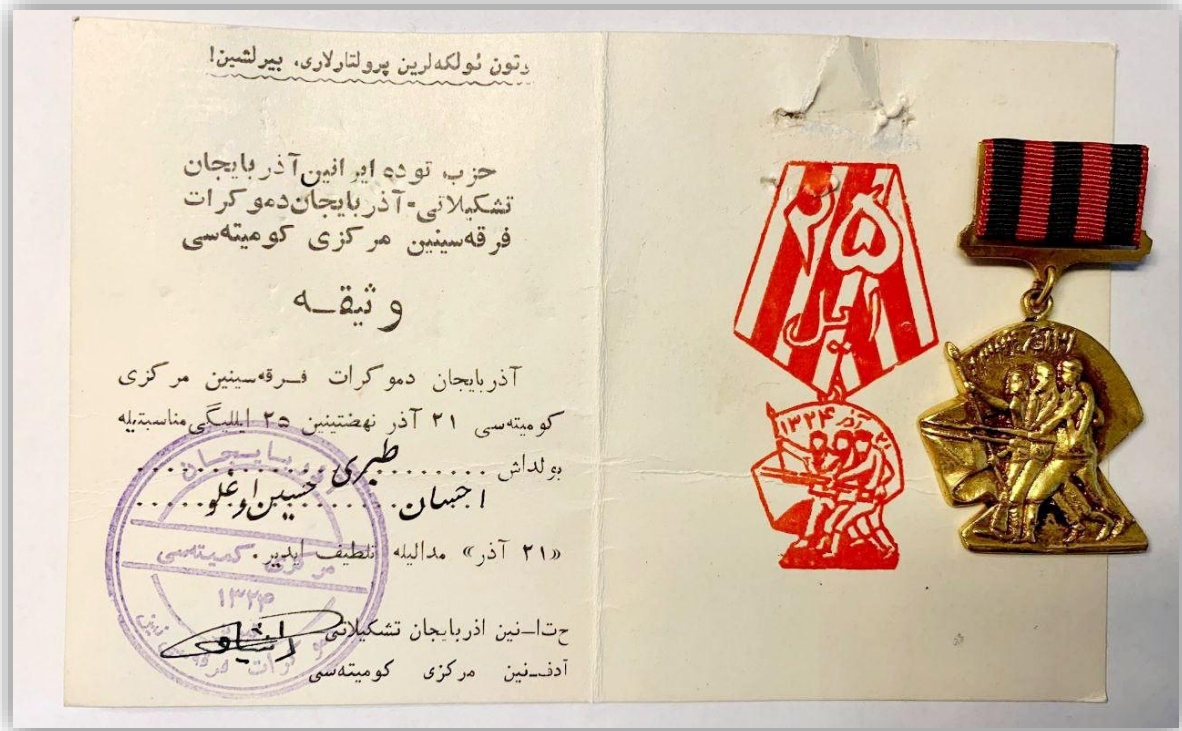 بوتون ئولکه‌لرین پرولتارلاری، بیرلشین!
حزب توده ایرانین آذربایجان
تشکیلاتی-آذربایجان دموکرات
فرقه‌سینین مرکزی کومیته‌سی
وثیقــه
آذربایجان دموکرات فــرقه‌سینین مرکزی
کومیته‌سی ۲۱ آذر نهضتینین ۲۵ ایللیگی مناسبتیله
یولداش ........ طبری ........
احسان ........ حسین اوغلو ........
«۲۱ آذر» مدالیله تلطیف ایدیر.
حتاــنین اذربایجان تشکیلاتی
آدفــنین مرکزی کومیته‌سی
آذربایجان
مرکزی کمیته‌سی
۱۳۲۴
دموکرات فرقه‌سی نین
۲۵
ایل
۲۱ آذر ۱۳۲۴
۲۱ آذر ۱۳۲۴